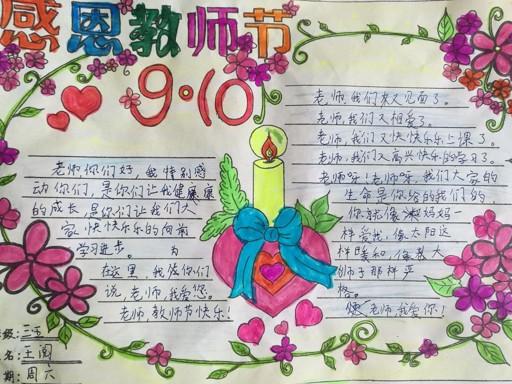 感恩教师节
9·10
老师你们好,我特别感
动你们,是你们让我健康
的成长,是你们让我们大
家快快乐乐的向前
学习进步。为
在这里,我作你们
说,老师,我爱您。
老师教师节快乐!
老师,我们来又见面了。
老师,我们又相爱了。
老师,我们又快快乐乐上课了。
老师,我们又高兴快乐的学习了。
老师呀!老师呀,我们大家的
生命是你给的我们的,
你就像 妈妈一
样爱我,像太阳这
样暖和,像
师子那样严
格。
老师,我爱你!
级:三五
名:王阅
期:周六